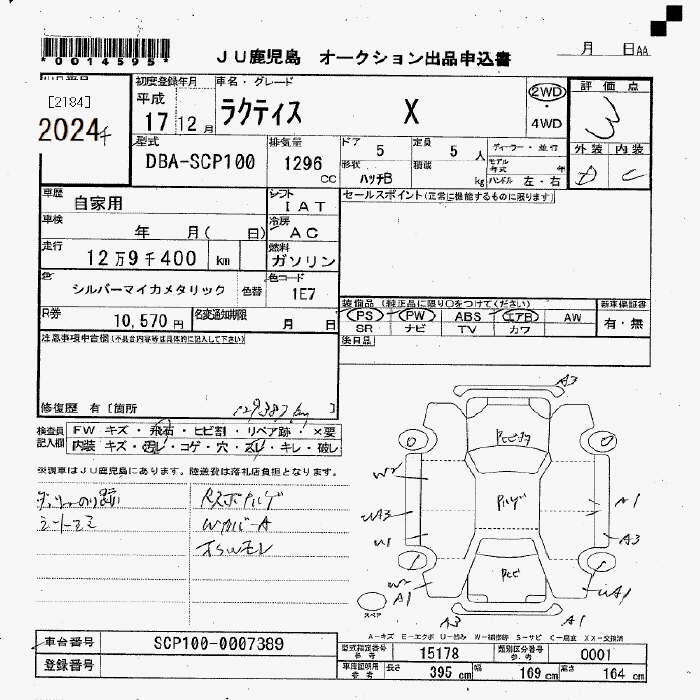 *0014595*
JU鹿児島 オークション出品申込書
月 日AA
[2184]
2024千
初度登録年月
平成
17 12 月
車名・グレード
ラクティス X
2WD
・
4WD
評価点
3
外装 内装
D C
型式
DBA-SCP100
排気量
1296
CC
ドア 5
定員 5 人
形状 ハッチB
積載 kg
ディーラー・並行
モデル年式 年
ハンドル 左・右
車歴
自家用
シフト
IAT
セールスポイント(正常に機能するものに限ります)
車検
年 月( 日)
冷房
AC
走行
12万9千400 km
燃料
ガソリン
色
シルバーマイカメタリック
色替
色コード
1E7
R券
10,570円
名変通知期限
月 日
装備品(純正品に限り○をつけてください)
PS PW ABS エアB AW
SR ナビ TV カワ
新車保証書
有・無
後日品
注意事項申告欄(不具合内容等は具体的に記入して下さい)
修復歴 有 [箇所 129387km ]
検査員記入欄
FW キズ・飛石・ヒビ割・リペア跡・×要
内装 キズ・汚レ・コゲ・穴・スレ・キレ・破レ
※現車はJU鹿児島にあります。陸送費は落札店負担となります。
A3
W2
UA3
U1
W2
A1
A1
A3
UA1
A3
A1
スペア
A-キズ E-エクボ U-凹み W-補修跡 S-サビ C-腐食 XX-交換済
車台番号
SCP100-0007389
登録番号
型式指定番号
参考
15178
類別区分番号
参考
0001
車庫証明用
参考
長さ 395 cm
幅 169 cm
高さ 164 cm